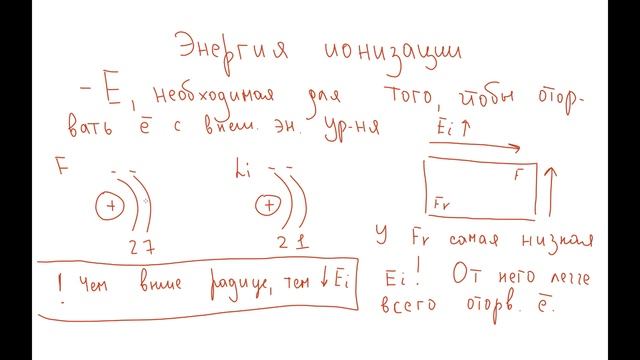 Энергия ионизации
- E, необходимая для того, чтобы отор-
вать ē с внеш. эн. ур-ня
Ei ↑
F
Li
F
Fr
+
+
2 7
2 1
! Чем выше радиус, тем ↓ Ei
У Fr самая низкая
Ei! От него легче
всего оторв. ē.